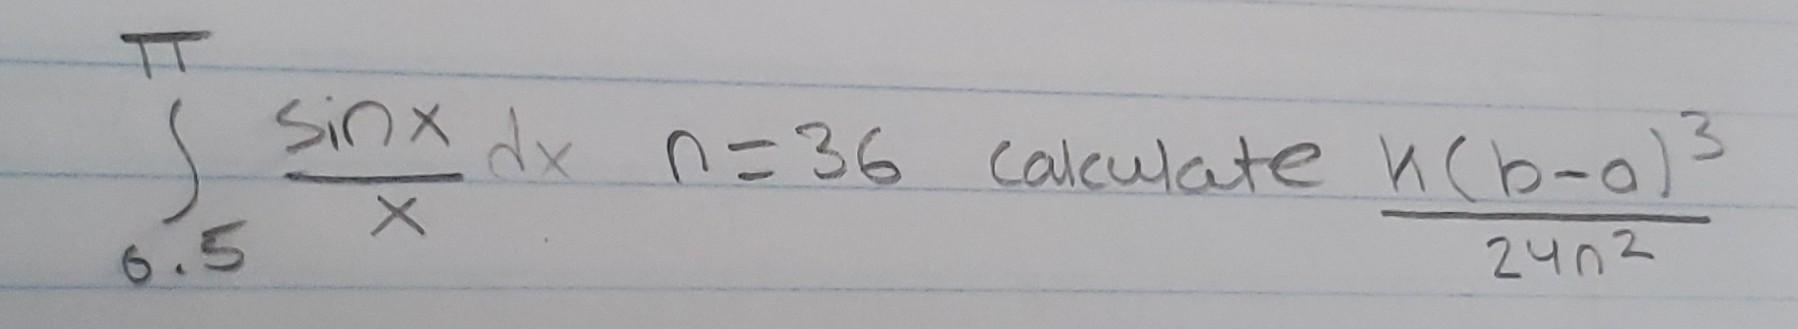 π
∫ sinx/x dx n=36 calculate k(b-a)³/24n²
0.5